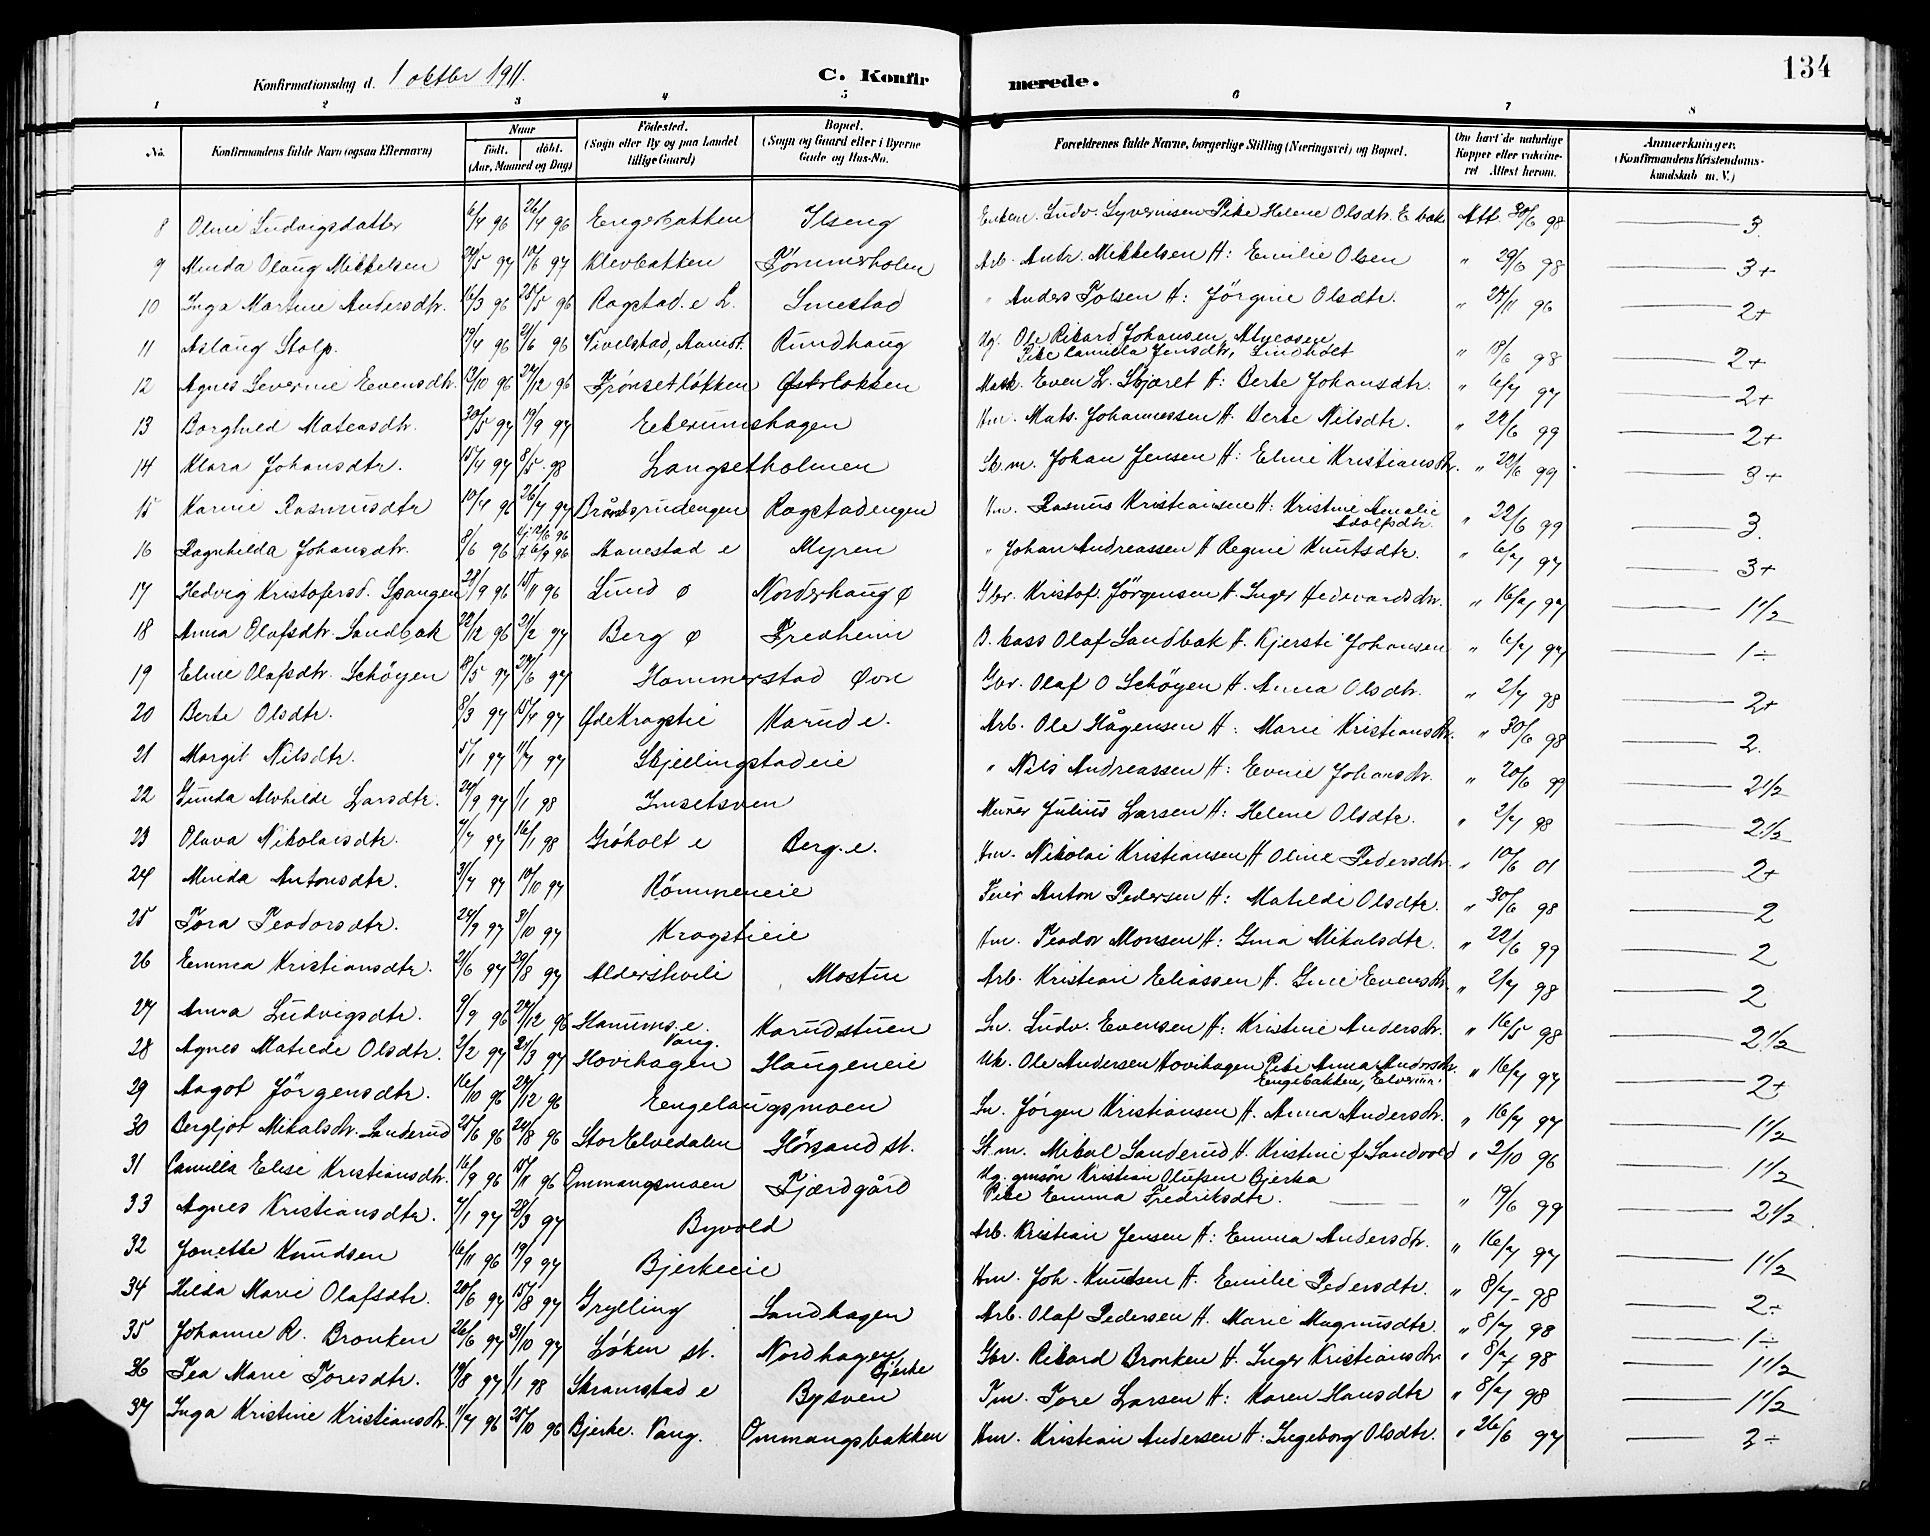 134
Konfirmationsdag d. 1 oktbr 1911.
C. Konfirmerede.
1 2 3 4 5 6 7 8
No. Konfirmandens fulde Navn (ogsaa Efternavn) Naar født. døbt. (Aar, Maaned og Dag) Fødested. (Sogn eller By og paa Landet tillige Gaard) Bopæl. (Sogn og Gaard eller i Byerne Gade og Hus-No. Forældrenes fulde Navne, borgerlige Stilling (Næringsvei) og Bopæl. Om havt de naturlige Kopper eller vakcineret Attest herom. Anmærkninger. (Konfirmandens Kristendomskundskab m. V.)
8 Oline Ludvigsdatter 6/4 96 26/4 96 Engerbakken Ilseng Enkem. Ludv. Syvernisen Pike Helene Olsdtr. E bak Att. 30/6 98 3.
9 Minda Olaug Mikkelsen 24/5 97 10/6 97 Klevbakken Tømmerholen Arb. Andr. Mikkelsen H: Emilie Olsen " 29/6 98 3+
10 Inga Martine Andersdtr. 16/3 96 25/5 96 Ragstad e L. Smestad " Anders Polsen H: Jörgine Olsdtr. " 24/11 96 2+
11 Aslaug Stolp. 19/4 96 21/6 96 Vivelstad, Aamot. Rundhaug Ug. Ole Rikard Johansen, Myrosen
Pike Camilla Jensdtr, Lindholt " 18/6 98 2+
12 Agnes Severine Evensdtr. 13/10 96 24/12 96 Frönsetløkken Østeløkken Mask. Even L. Skjæret H: Berte Johansdtr. " 6/7 97 2+
13 Borghild Mateasdtr. 30/5 97 19/9 97 Eekerumshagen Hm. Mats. Johannessen H. Berte Nilsdtr. " 22/6 99 2+
14 Klara Johansdtr. 15/4 97 8/5 98 Langsetholmen Sk.m. Johan Jensen H: Eline Kristiansdtr. " 22/6 99 3+
15 Karine Rasmusdtr 10/4 96 26/4 97 Bråndsrudengen Ragstadengen Hm. Rasmus Kristiansen H: Kristine Amalie
Adolfsdtr. " 22/6 99 3.
16 Ragnhilda Johansdtr. 8/6 96 hj. 12/6 96
7 6/9 96 Aanestad e Myren " Johan Andreassen H Regine Knutsdtr. " 6/7 97 3+
17 Hedvig Kristofersd. Spangen 28/9 96 15/11 96 Lund ø Norderhaug ø Gbr. Kristof. Jörgensen H. Inger Hedevardsdtr. " 16/7 97 1 1/2
18 Anna Olafsdtr. Sandbak 22/12 96 21/2 97 Berg ø Fredheim B. bass Olaf Sandbak H. Kjersti Johansen " 6/7 97 1÷
19 Eline Olafsdtr. Schöyen 8/5 97 27/6 97 Hammerstad Øvre Gbr. Olaf O Schöyen H. Anna Olsdtr. " 2/7 98 2+
20 Berte Olsdtr. 8/3 97 15/4 97 Øde Kragstie Karud e. Arb. Ole Hågensen H: Marie Kristiansdtr. " 30/6 98 2.
21 Margit Nilsdtr. 5/1 97 11/4 97 Skjellingstadeie " Nils Andreassen H: Evine Johansdtr. " 20/6 99 2 1/2
22 Gunda Alvhilde Larsdtr. 24/9 97 1/1 98 Imsetsven Murer Julius Larsen H: Helene Olsdtr. " 2/7 98 2 1/2
23 Olava Nikolaisdtr. 7/7 97 16/1 98 Gröholt e Berg. e. Hm. Nikolai Kristiansen H Oline Pedersdtr. " 10/6 01 2+
24 Minda Antonsdtr. 31/7 97 10/10 97 Römmeneie Feier Anton Pedersen H: Matilde Olsdtr. " 30/6 98 2
25 Tora Teodorsdtr. 24/9 97 31/10 97 Kragstieie Hm. Teodor Monsen H: Gina Mikalsdtr. " 22/6 99 2
26 Emma Kristiansdtr. 21/6 97 29/8 97 Aldershvile Mostue Arb. Kristian Eliassen H. Gine Evensdtr. " 2/7 98 2
27 Anna Ludvigsdtr. 9/9 96 27/12 96 Hanums. e. Vang. Karudstuen Sn. Ludv. Evensen H: Kristine Andersdtr. " 16/5 98 2 1/2
28 Agnes Matilde Olsdtr. 2/2 97 21/3 97 Hovihagen Haugeneie Uk. Ole Andersen Hovihagen Pike Anna Andersdtr.
Engebakken, Elverum. " 16/7 97 2+
29 Aagot Jörgensdtr. 16/10 96 27/12 96 Engelaugsmoen Sn. Jörgen Kristiansen H. Anna Andersdtr. " 16/7 97 1 1/2
30 Bergljot Mikalsdtr. Sanderud 25/6 96 24/8 96 Stor Elvedalen Hörsand st. St. m. Mikal Sanderud H. Kristine f. Sandvold " 2/10 96 1 1/2
31 Camilla Elise Kristiansdtr. 16/9 96 15/11 96 Ommangsmoen Fjærdgård Ug. gmsön Kristian Olufsen Bjerka
Pike Emma Fredriksdtr. " 19/6 99 2 1/2.
33 Agnes Kristiansdtr. 7/1 97 28/3 97 Byvold Arb. Kristian Jensen H: Emma Andersdtr. " 16/7 97 1 1/2
32 Jonette Knudsen 16/11 96 19/9 97 Bjerkeeie Hm. Joh. Knudsen H. Emilie Pedersdtr. " 8/7 98 2÷
34 Hilda Marie Olafsdtr. 20/6 97 15/8 97 Grylling Sandhagen Arb. Olaf Pedersen H. Marie Magnusdtr. " 8/7 98 1÷
35 Johanne R. Bronken 26/6 97 31/10 97 Løken st. Nordhagen
Bjerke Gbr. Rikard Bronken H. Inger Kristiansdtr. " 8/7 98 1 1/2
36 Tea Marie Toresdtr. 19/8 97 1/1 98 Skramstad e Bysven Tm. Tore Larsen H: Karen Hansdtr " 8/7 98 1 1/2
37 Inga Kristine Kristiansdtr. 11/7 96 25/10 96 Bjerke. Vang. Ommangsbakken Hm. Kristian Andersen H: Ingeborg Olsdtr. " 26/6 97 2÷